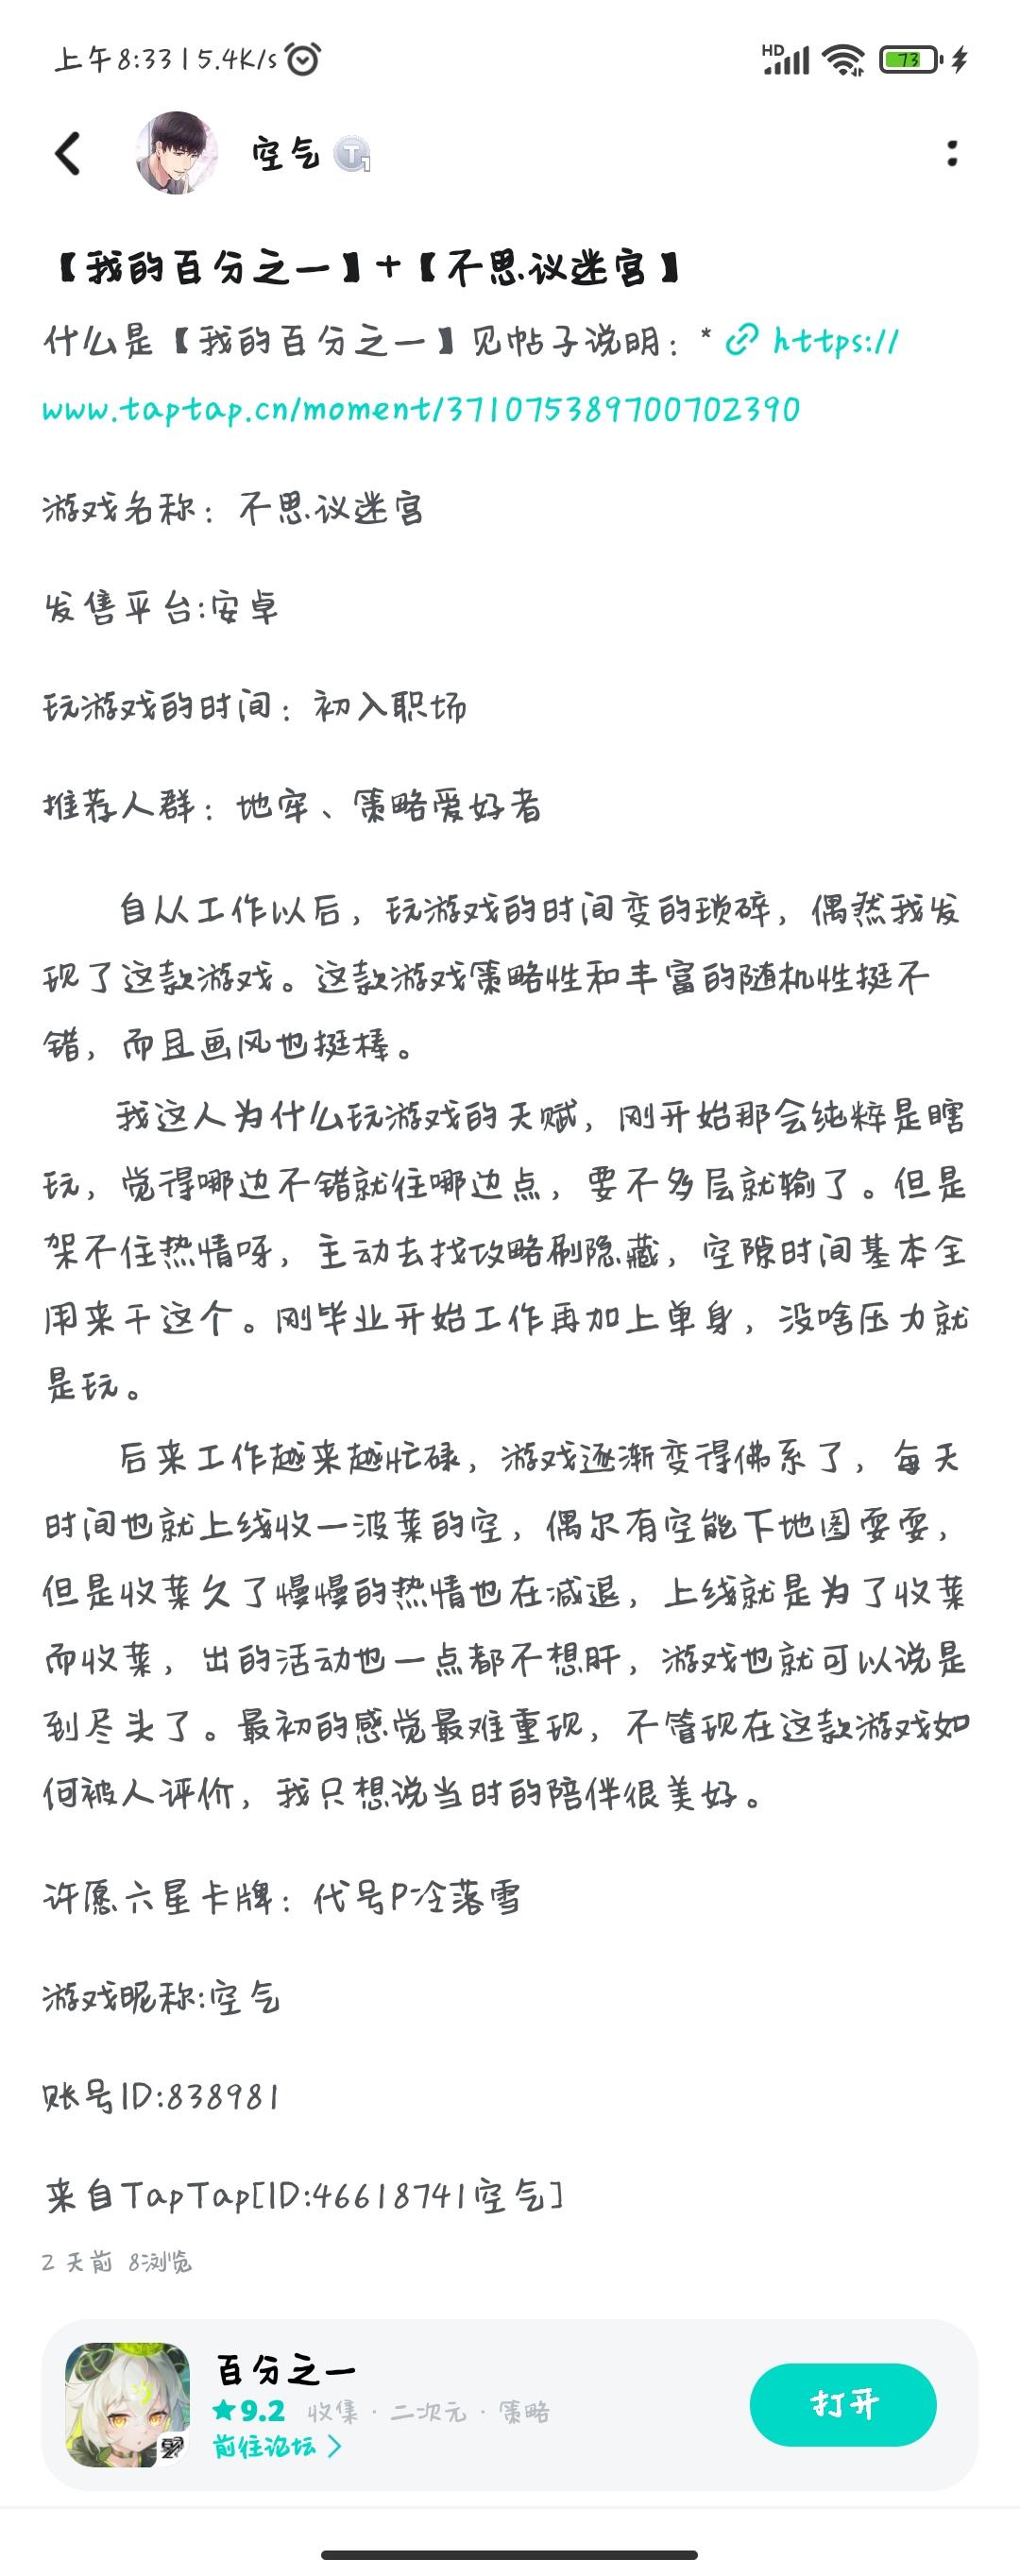 上午8:33 | 5.4K/s
HD
73
空气 T1
【我的百分之一】+【不思议迷宫】
什么是【我的百分之一】见帖子说明：* https://
www.taptap.cn/moment/371075389700702390
游戏名称：不思议迷宫
发售平台:安卓
玩游戏的时间：初入职场
推荐人群：地牢、策略爱好者
自从工作以后，玩游戏的时间变的琐碎，偶然我发
现了这款游戏。这款游戏策略性和丰富的随机性挺不
错，而且画风也挺棒。
我这人为什么玩游戏的天赋，刚开始那会纯粹是瞎
玩，觉得哪边不错就往哪边点，要不多层就输了。但是
架不住热情呀，主动去找攻略刷隐藏，空隙时间基本全
用来干这个。刚毕业开始工作再加上单身，没啥压力就
是玩。
后来工作越来越忙碌，游戏逐渐变得佛系了，每天
时间也就上线收一波菜的空，偶尔有空能下地图耍耍，
但是收菜久了慢慢的热情也在减退，上线就是为了收菜
而收菜，出的活动也一点都不想肝，游戏也就可以说是
到尽头了。最初的感觉最难重现，不管现在这款游戏如
何被人评价，我只想说当时的陪伴很美好。
许愿六星卡牌：代号P冷落雪
游戏昵称:空气
账号ID:838981
来自TapTap[ID:46618741空气]
2 天前 8浏览
百分之一
★9.2 收集 · 二次元 · 策略
前往论坛 >
打开